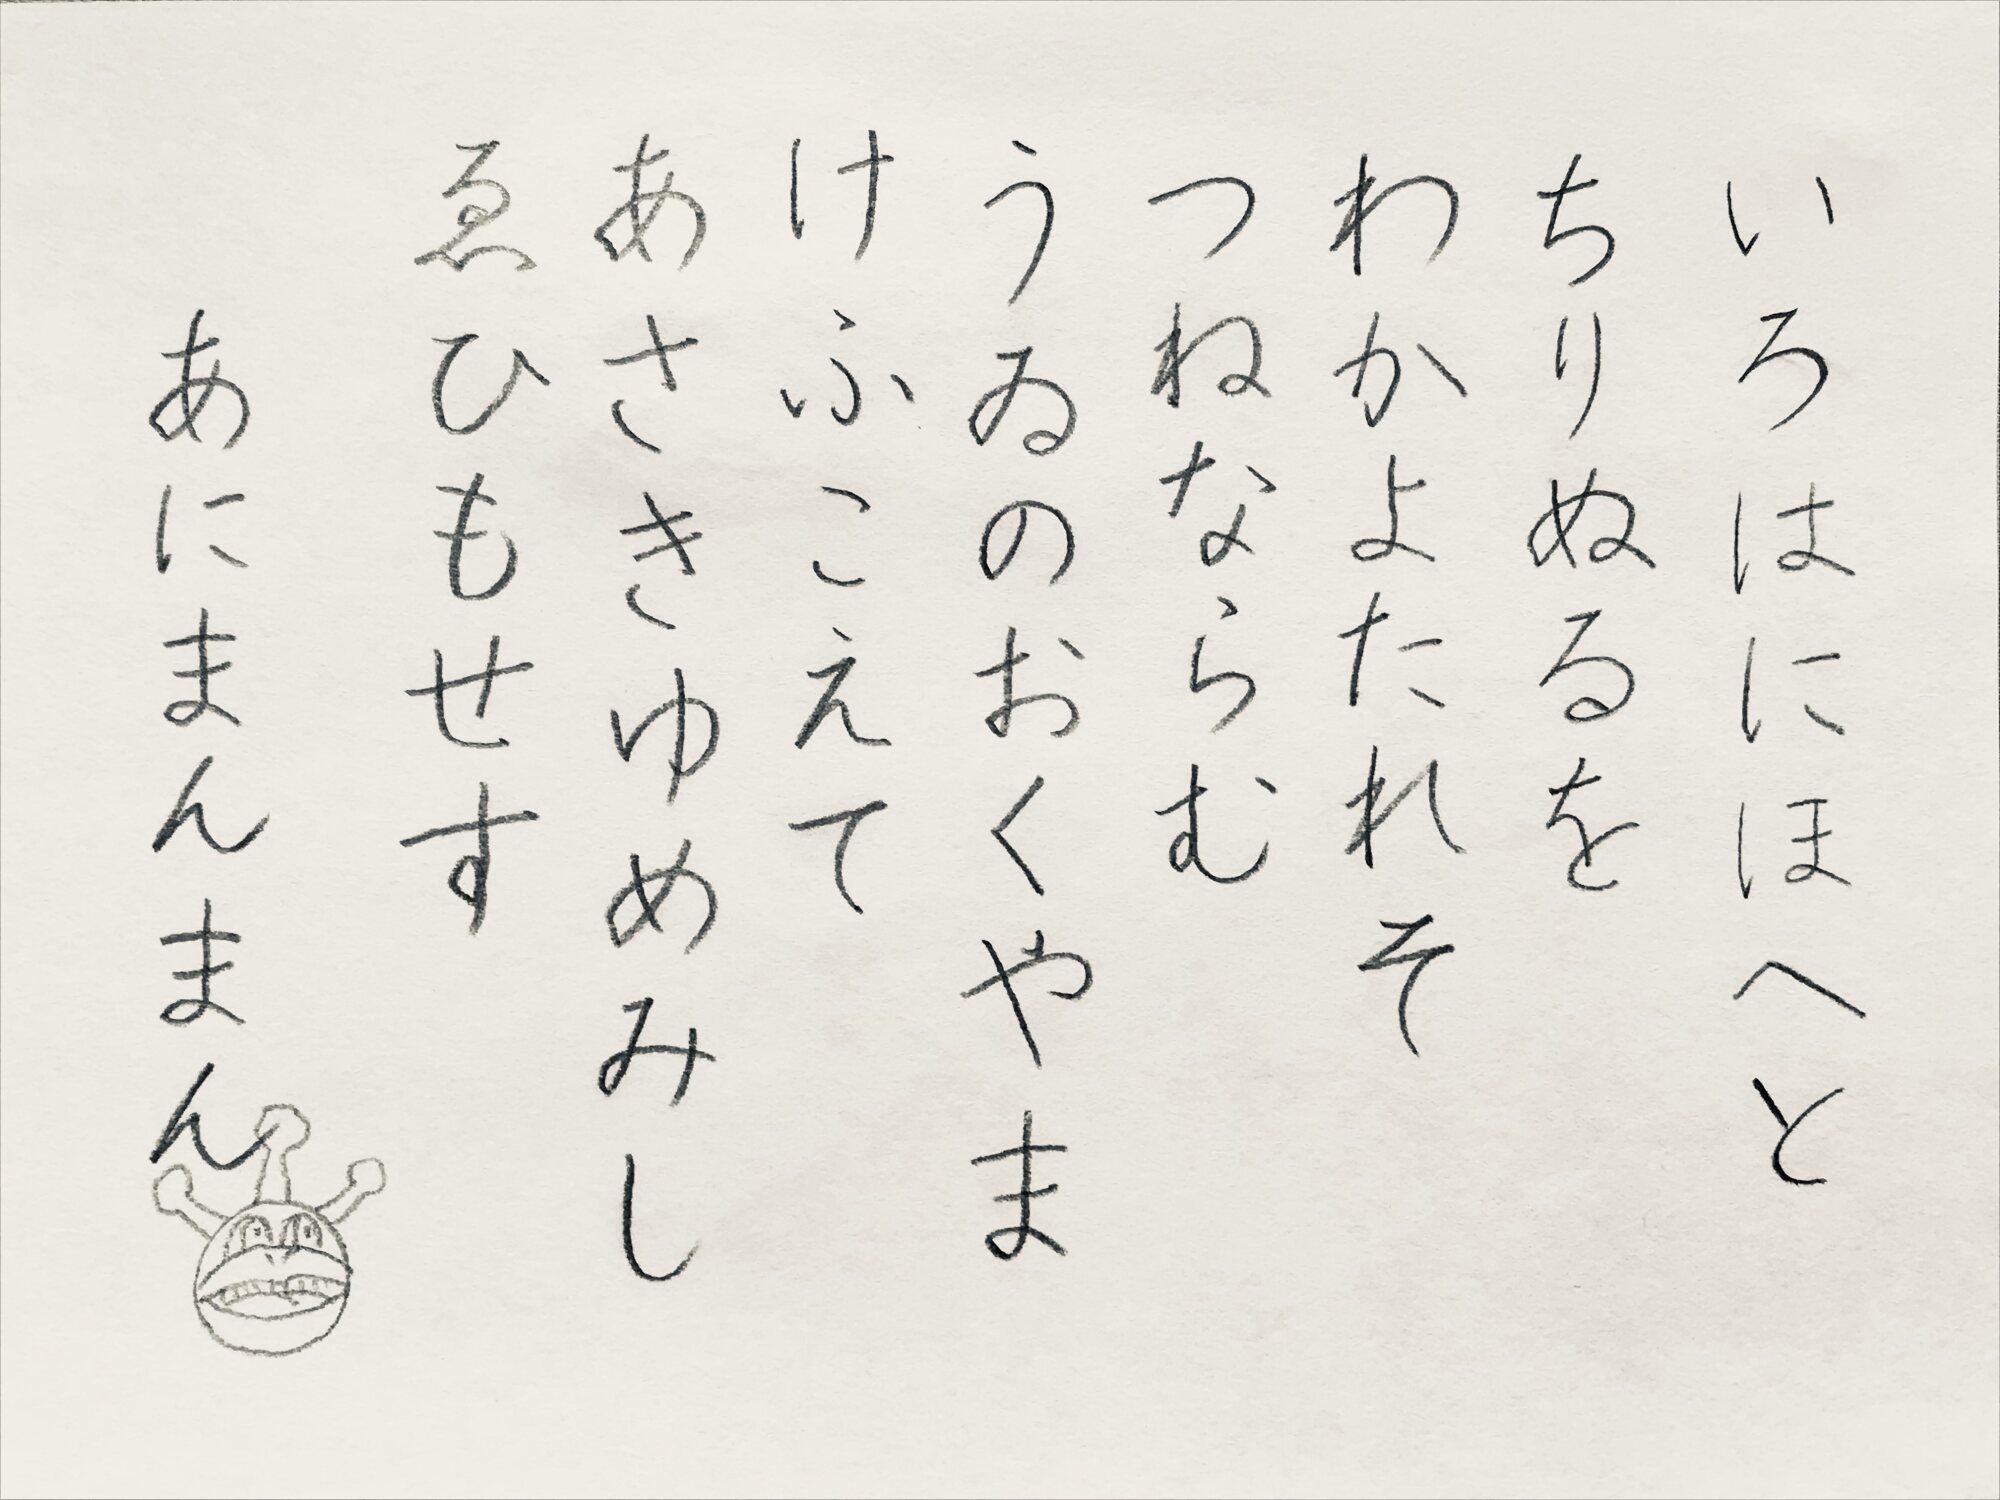 いろはにほへと
ちりぬるを
わかよたれそ
つねならむ
うゐのおくやま
けふこえて
あさきゆめみし
ゑひもせす
あにまんまん